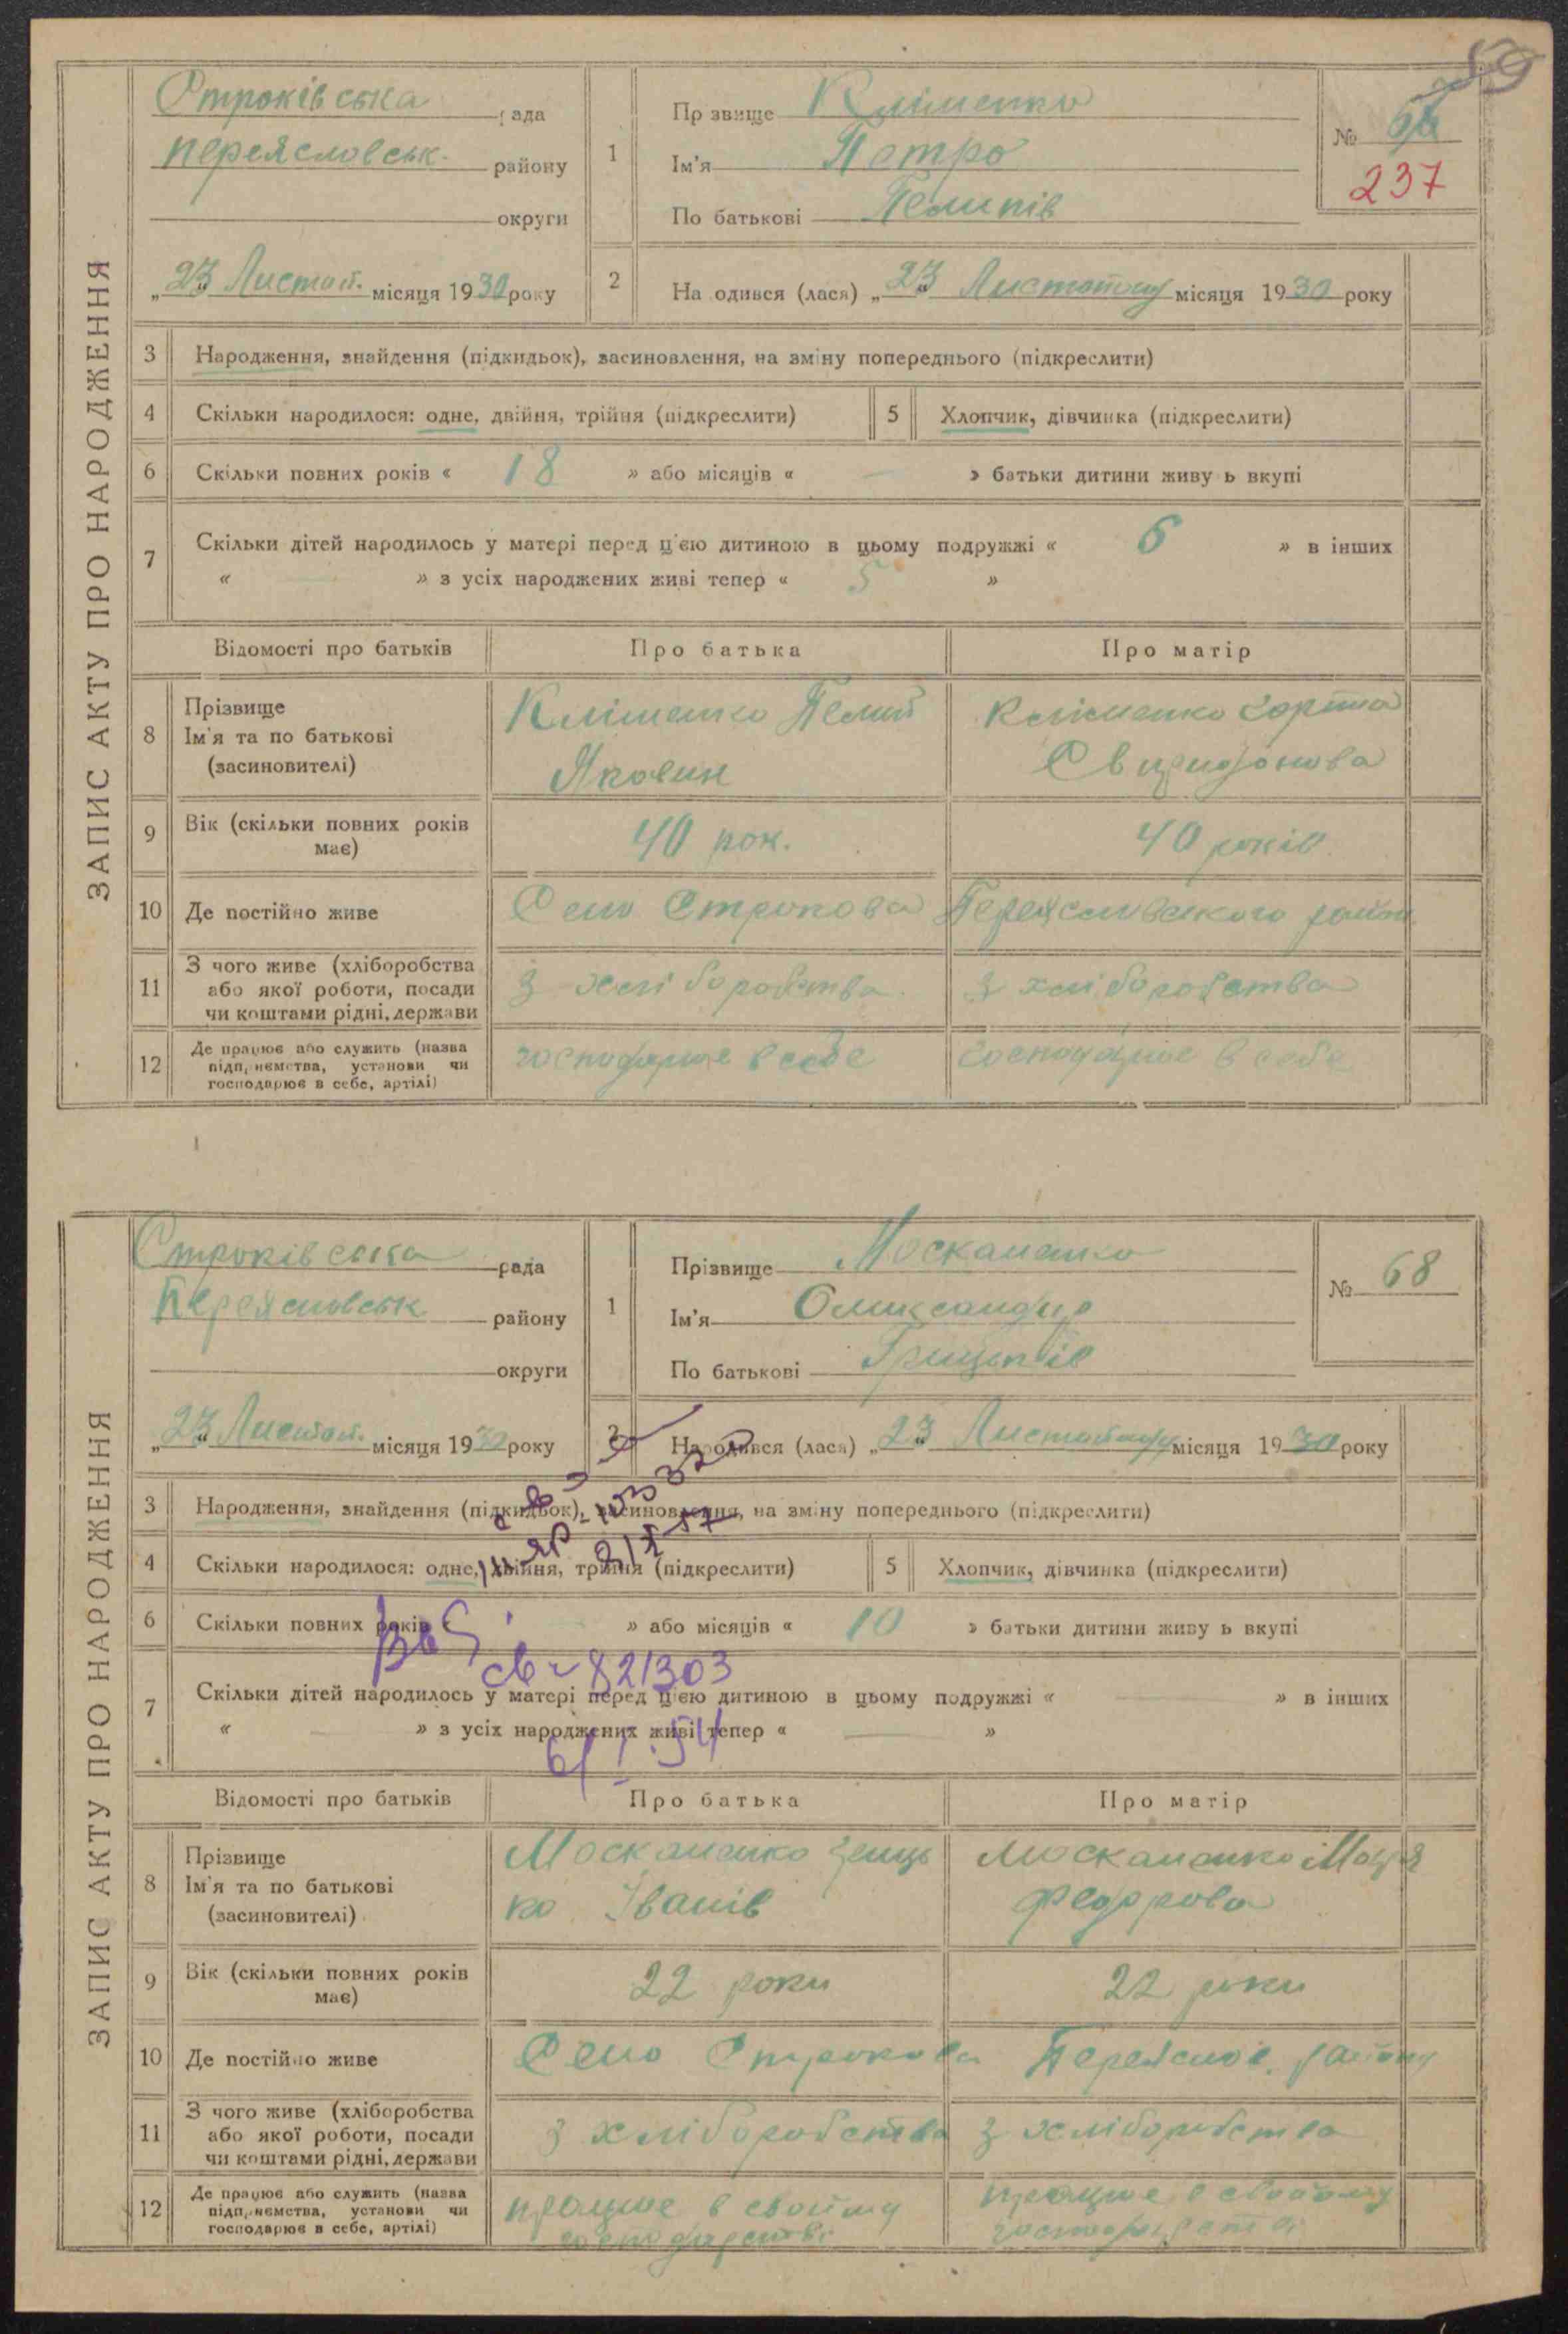 ЗАПИС АКТУ ПРО НАРОДЖЕННЯ
59
Строківська рада
Переясловськ. району
округи
„23“ Листоп. місяця 1930 року
1
Прізвище Кліменко
Ім'я Петро
По батькові Пелипів
№
237
2
Народився (лася) „23“ Листопаду місяця 1930 року
3 Народження, знайдення (підкидьок), засиновлення, на зміну попереднього (підкреслити)
4 Скільки народилося: одне, двійня, трійня (підкреслити)
5 Хлопчик, дівчинка (підкреслити)
6 Скільки повних років « 18 » або місяців « — » батьки дитини живуть вкупі
7 Скільки дітей народилось у матері перед цією дитиною в цьому подружжі « 6 » в інших
« — » з усіх народжених живі тепер « 5 »
Відомості про батьків Про батька Про матір
8 Прізвище
Ім'я та по батькові
(засновителі)
Кліменко Пелип
Якович
Кліменко
Свиридонова
9 Вік (скільки повних років
має)
40 рок. 40 років
10 Де постійно живе Село Строкова Переясловського району
11 З чого живе (хліборобства
або якої роботи, посади
чи коштами рідні, держави
З хліборобства З хліборобства
12 Де працює або служить (назва
підприємства, установи чи
господарює в себе, артілі)
господарює в себе господарює в себе
ЗАПИС АКТУ ПРО НАРОДЖЕННЯ
Строківська рада
Переясловськ. району
округи
„23“ Листоп. місяця 1930 року
1
Прізвище Москаленко
Ім'я Олександр
По батькові Грицьків
№ 68
2
Народився (лася) „23“ Листопаду місяця 1930 року
3 Народження, знайдення (підкидьок), засиновлення, на зміну попереднього (підкреслити)
4 Скільки народилося: одне, двійня, трійня (підкреслити)
5 Хлопчик, дівчинка (підкреслити)
6 Скільки повних років « — » або місяців « 10 » батьки дитини живуть вкупі
св 821303
7 Скільки дітей народилось у матері перед цією дитиною в цьому подружжі « — » в інших
« — » з усіх народжених живі тепер « — »
6/I.54
Відомості про батьків Про батька Про матір
8 Прізвище
Ім'я та по батькові
(засиновителі)
Москаленко
ко Іванів
Москаленко
Федорова
9 Вік (скільки повних років
має)
22 роки 22 роки
10 Де постійно живе Село Строкова Переяслов. району
11 З чого живе (хліборобства
або якої роботи, посади
чи коштами рідні, держави
З хліборобства З хліборобства
12 Де працює або служить (назва
підприємства, установи чи
господарює в себе, артілі)
працює в свойому
господарстві
працює в свойому
господарстві